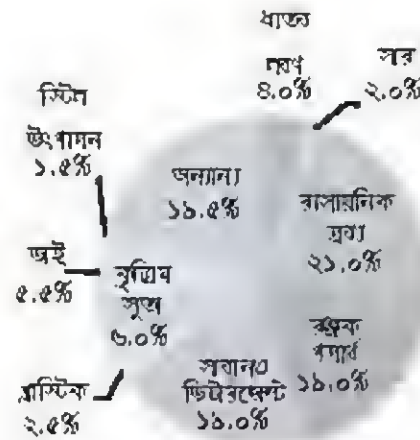 ধাতব
লবণ
৪.০%
সার
২.০%
স্টিল
উৎপাদন
১.৫%
অন্যান্য
১৯.৫%
রাসায়নিক
দ্রব্য
২১.০%
৫.৫%
কৃত্রিম
সুতা
৬.০%
রঞ্জক
পদার্থ
১৯.০%
সাবানও
ডিটারজেন্ট
১৯.০%
প্লাস্টিক
২.৫%